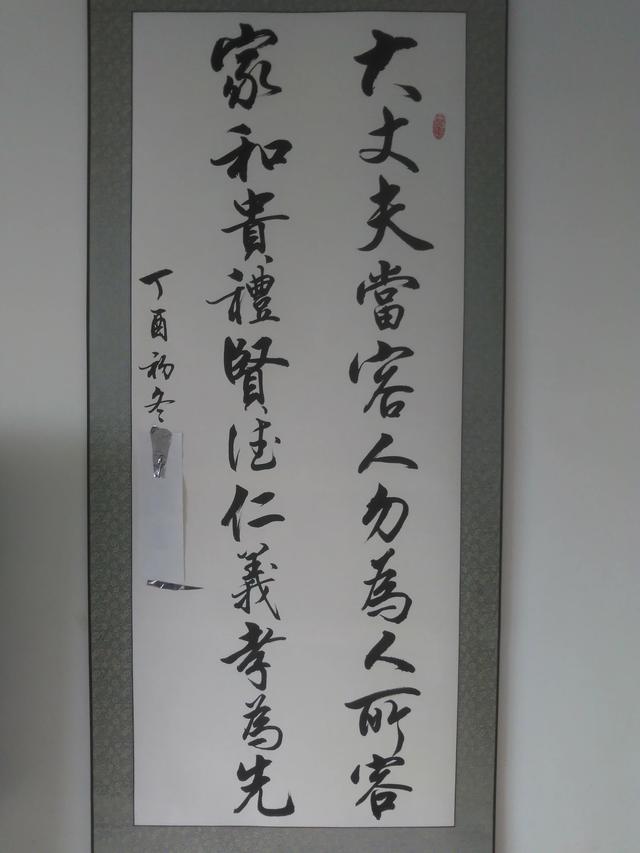 大丈夫當容人勿為人所容
家和貴禮賢德仁義孝為先
丁酉初冬